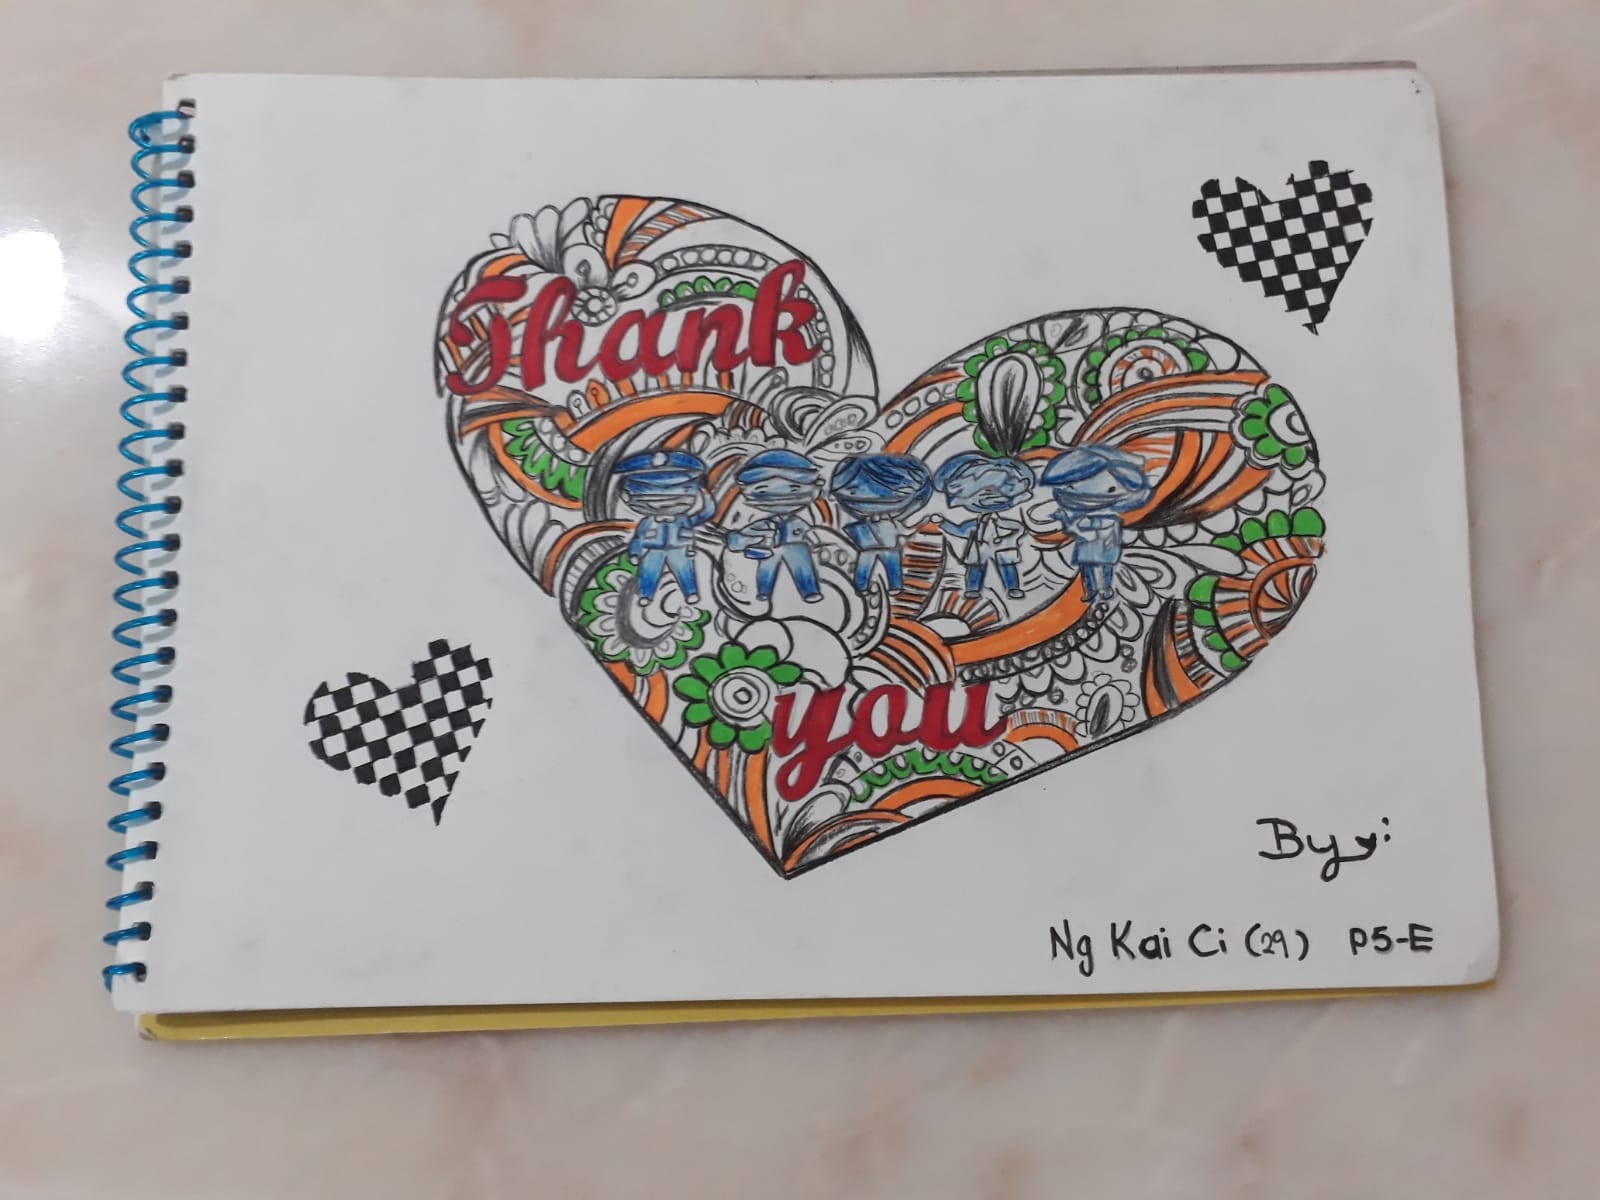 Thank
you
By:
Ng Kai Ci (29) P5-E